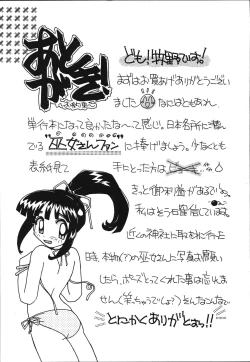 あとがき
ども!!牧野です。
まずはお買あげありがとうござい
ました なにはともあれ、
単行本になって良かったな～って感じ。日本各所に潜ん
でいる"巫女さんファン"に捧げましょう。少なくとも
表紙見て 手にとった方は
きっと御利益があるでしょう。
私はそう日々確信しています。
近くの神社に取材に行った
時、本物の巫女さんに写真お願い
したら、ポーズとってくれた事は忘れま
せん(笑っちゃうでしょ?)そんなこんなで
とにかくありがとぉっ!!